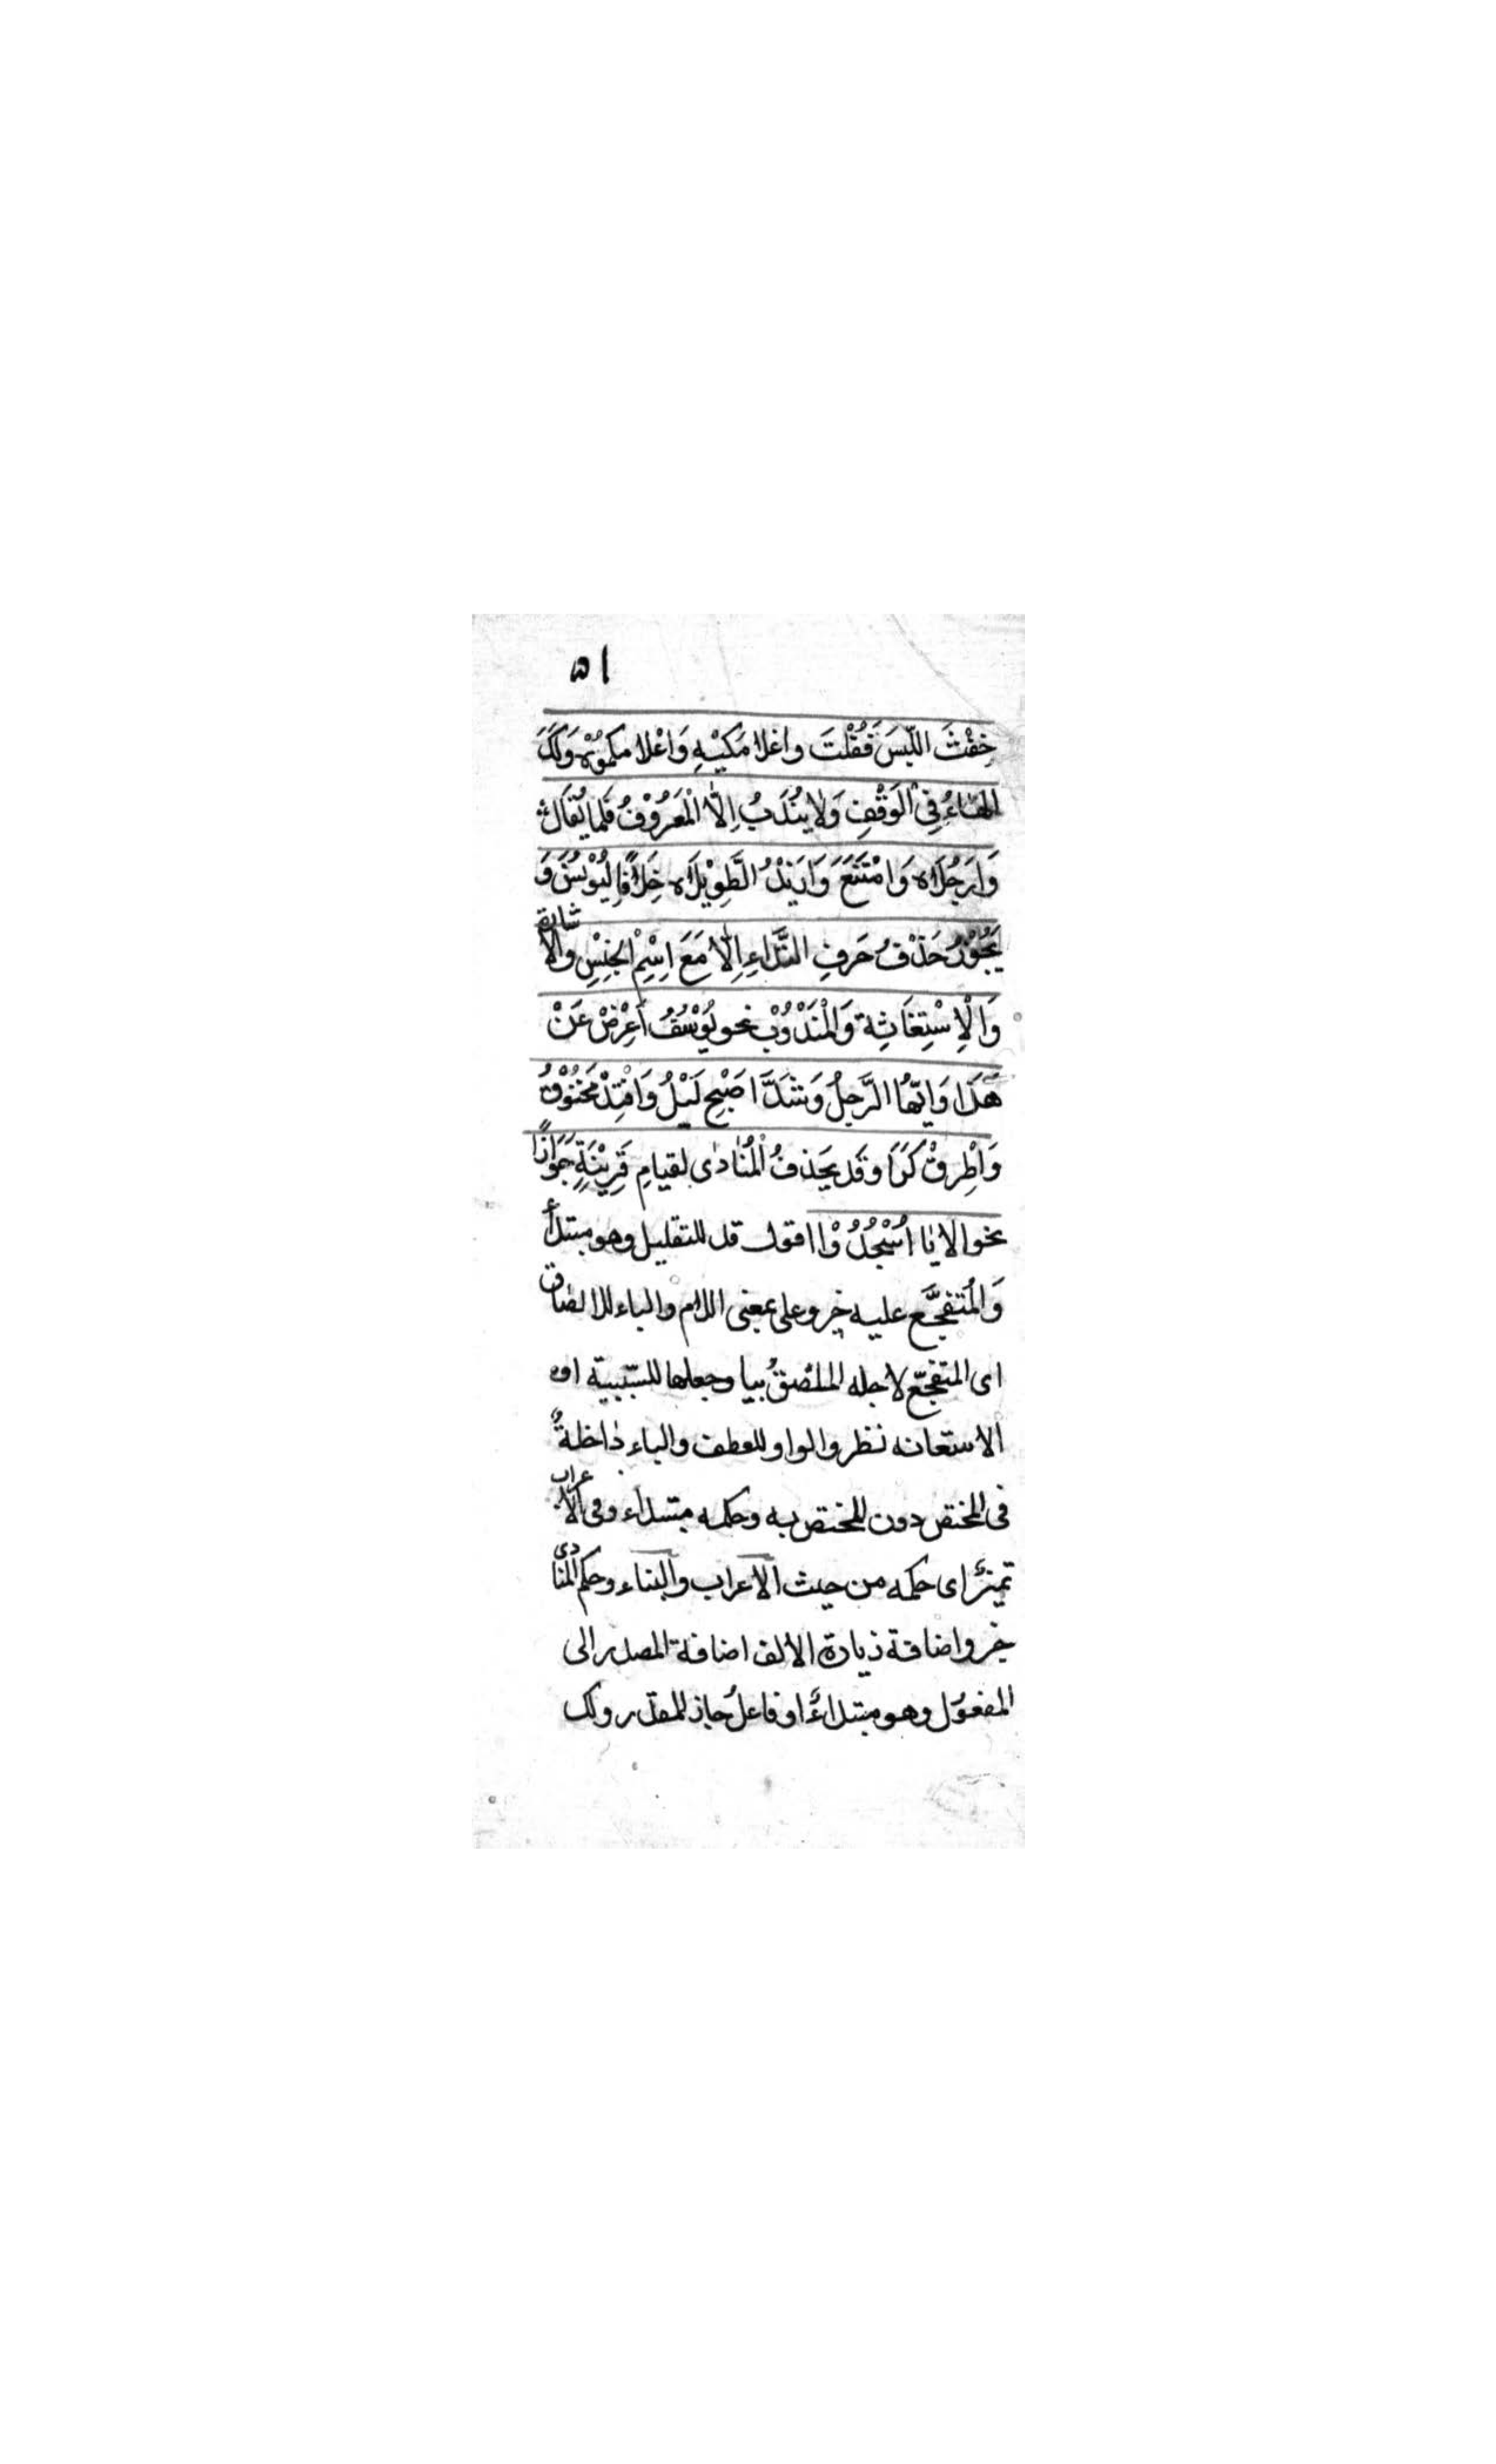 ٥١
خِفْتَ اللّبسَ فَقُلْتَ واغلامَكِيْهِ وَاغْلامكموُهْ وَلَكَ
الهَاءُ فِي الْوَقْفِ وَلَا يُنْدَبُ اِلَّا الْمَعْرُوْفُ فَلَا يُقَالُ
وَارَجُلَاه وَامْتَنَعَ وَازَيْدُ الطَّوِيْلَاه خِلَافًا لِيُوْنُسَ وَ
يَجُوْزُ حَذْفُ حَرفِ النِّدَاءِ اِلَّا مَعَ اِسْمِ الْجِنْسِ والاشارة
وَالْاِسْتِغَاثِة وَالْمَنْدُوْبْ نحو يُوْسُفُ اَعْرِضْ عَنْ
هٰذَا وَايّهُا الرَّجلُ وَشَذَّ اصْبِح لَيْلُ وَافْتِدْ مَخْنُوْقُ
وَاطْرِقْ كَرَا وقَد يحَذفُ الْمُنَادٰى لقيامِ قَرِيْنَةٍ جَوَازًا
نحو الا يَا اسْجُدُوْا اقول قد للتقليل وهو مبتدأ
وَالمُتفجَّع عليه خبر وعلى بمعنى اللام والباء للالصاق
اى المتفجّع لاجله الملصَقُ بيا وجعلها للسّببية او
الاستعانه نظر والواو للعطف والباء داخلةٌ
فى المختص دون المختص به وحكمه مبتداء وفى الاعراب
تميزٌ اى حكمه من حيث الاعراب والبناء وحكم المنادى
خبر واضافة زيادة الالف اضافة المصدر الى
المفعوُل وهو مبتداءٌ او فاعلُ جاز المقدر ولك